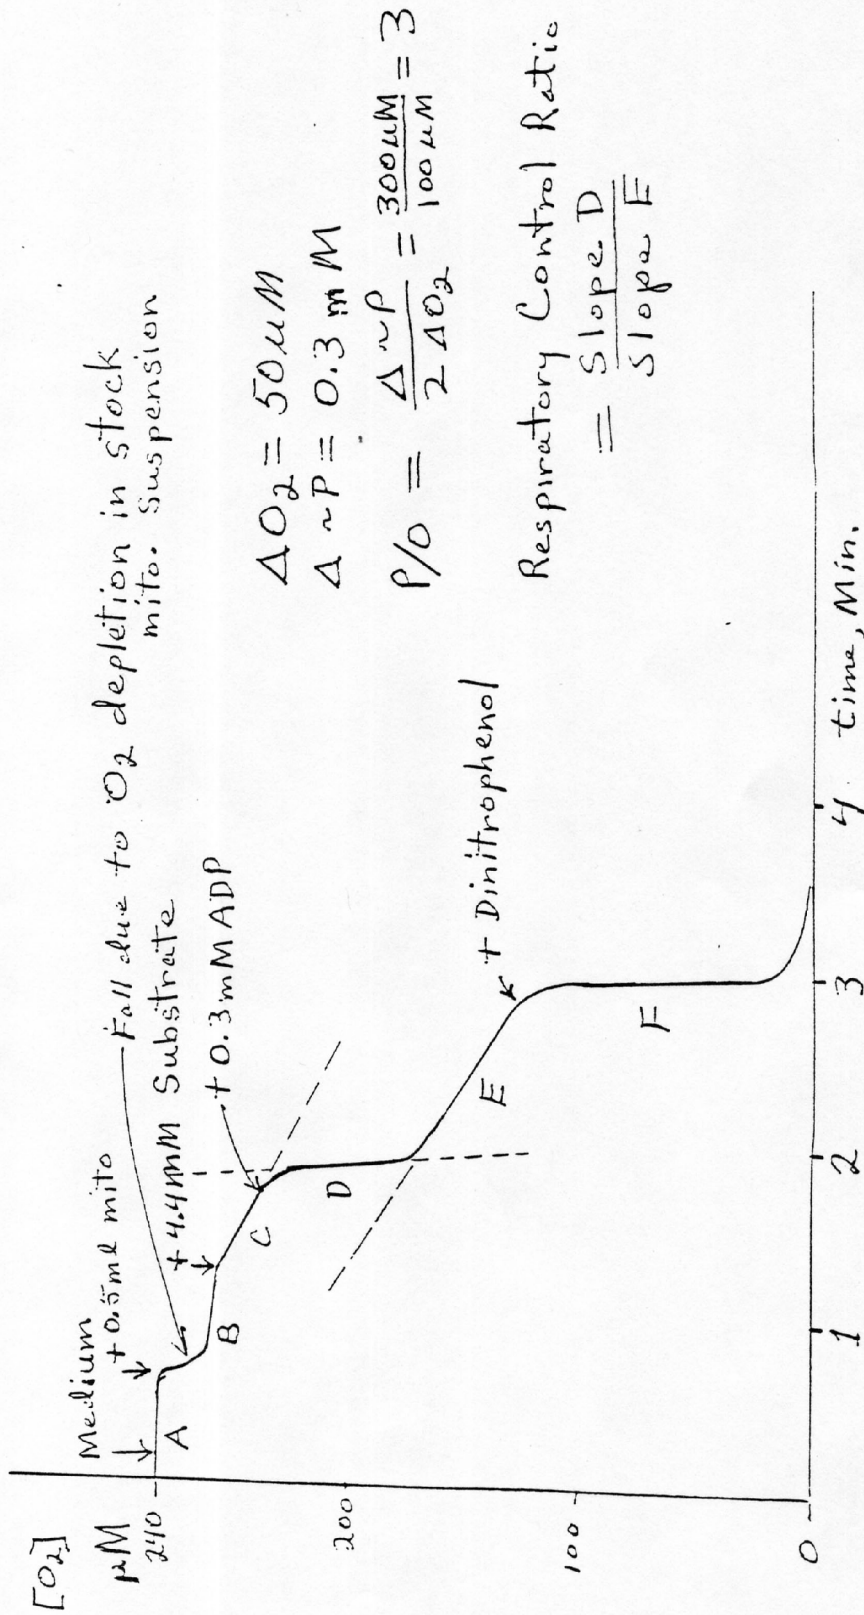 [O₂]
μM
240
200
100
0
Medium
+ 0.5ml mito
Fall due to O₂ depletion in stock
mito. Suspension
+ 4.4mM Substrate
+ 0.3mM ADP
A
B
C
D
E
F
+ Dinitrophenol
ΔO₂ = 50μM
Δ ~P = 0.3 mM
P/O = Δ ~P / 2 ΔO₂ = 300μM / 100μM = 3
Respiratory Control Ratio
= Slope D / Slope E
1 2 3 4 time, Min.